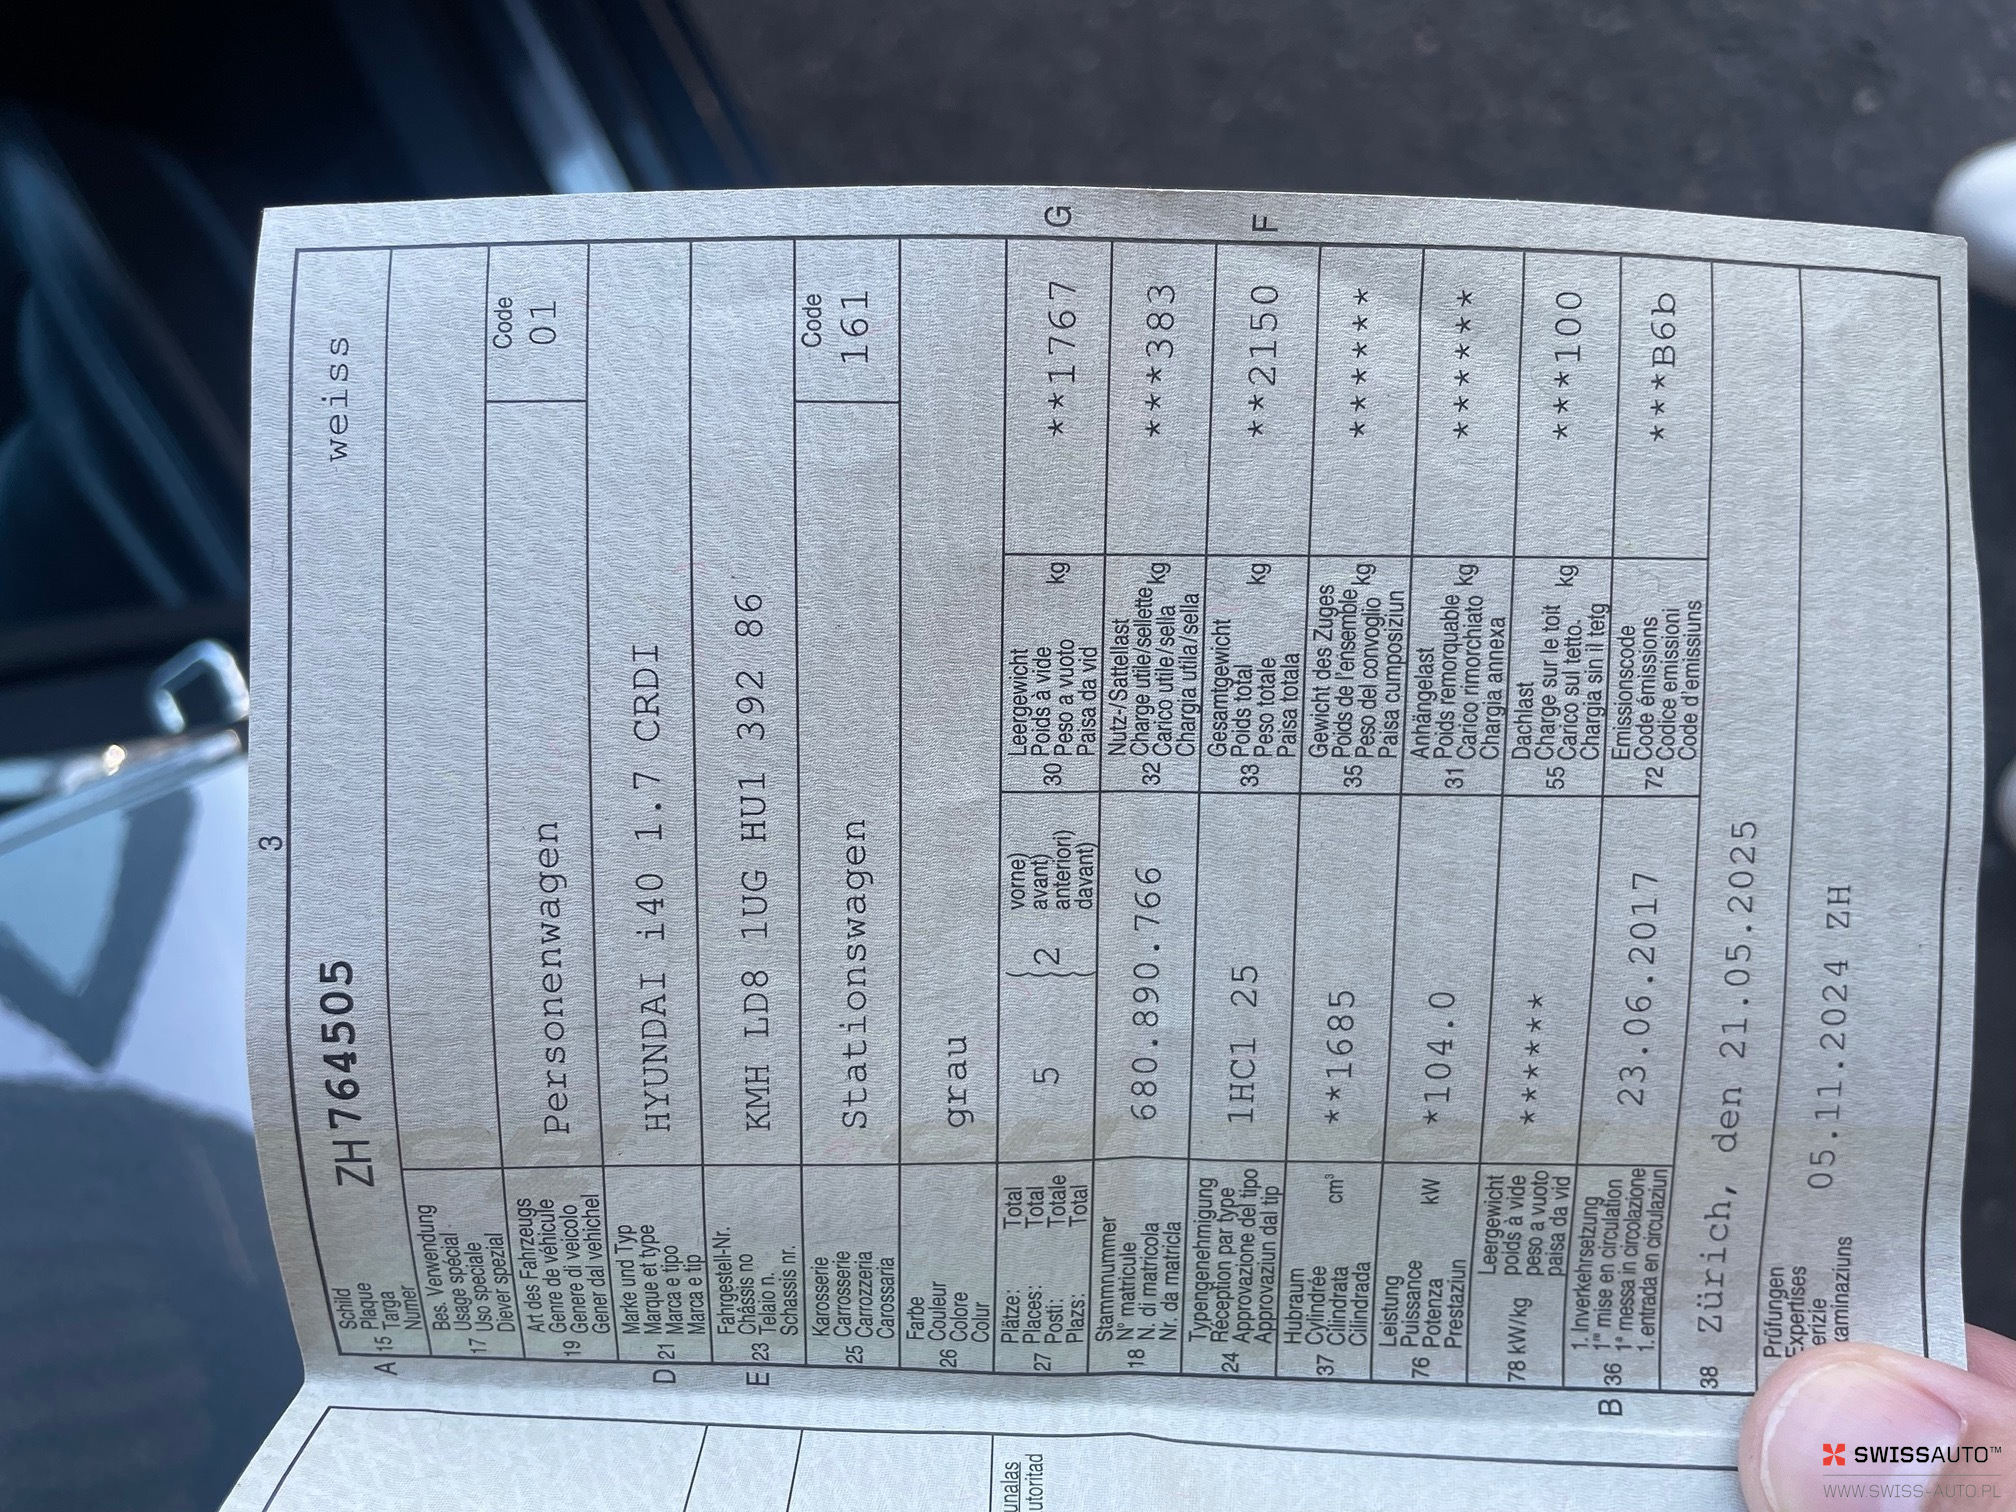 3
Schild
Plaque
A 15 Targa
Numer
ZH 764505
weiss
Bes. Verwendung
Usage spécial
17 Uso speciale
Diever spezial
Art des Fahrzeugs
Genre de véhicule
19 Genere di veicolo
Gener dal vehichel
Personenwagen
Code
01
Marke und Typ
Marque et type
D 21 Marca e tipo
Marca e tip
HYUNDAI i40 1.7 CRDI
Fahrgestell-Nr.
Châssis no
E 23 Telaio n.
Schassis nr.
KMH LD8 1UG HU1 392 86
Karosserie
Carrosserie
25 Carrozzeria
Carossaria
Stationswagen
Code
161
Farbe
Couleur
26 Colore
Colur
grau
Plätze: Total
Places: Total
27 Posti: Totale
Plazs: Total
5
{2
vorne)
avant)
anteriori)
davant)
Leergewicht
Poids à vide
30 Peso a vuoto kg
Paisa da vid
**1767
G
Stammnummer
N° matricule
18 N. di matricola
Nr. da matricla
680.890.766
Nutz-/Sattellast
Charge utile/sellette
32 Carico utile/sella kg
Chargia utila/sella
***383
Typengenehmigung
Réception par type
24 Approvazione del tipo
Approvaziun dal tip
1HC1 25
Gesamtgewicht
Poids total
33 Peso totale kg
Paisa totala
**2150
F
Hubraum
Cylindrée
37 Cilindrata cm³
Cilindrada
**1685
Gewicht des Zuges
Poids de l'ensemble
35 Peso del convoglio kg
Paisa cumposiziun
******
Leistung
Puissance
76 Potenza kW
Prestaziun
*104.0
Anhängelast
Poids remorquable
31 Carico rimorchiato kg
Chargia annexa
******
Leergewicht
78 kW/kg poids à vide
peso a vuoto
paisa da vid
******
Dachlast
55 Charge sur le toit
Carico sul tetto. kg
Chargia sin il tetg
***100
1. Inverkehrsetzung
B 36 1re mise en circulation
1a messa in circolazione
1. entrada en circulaziun
23.06.2017
Emissionscode
72 Code émissions
Codice emissioni
Code d'emissiuns
***B6b
38 Zürich, den 21.05.2025
Prüfungen
Expertises
erizie
xaminaziuns
05.11.2024 ZH
unalas
utoritad
SWISSAUTO™
WWW.SWISS-AUTO.PL